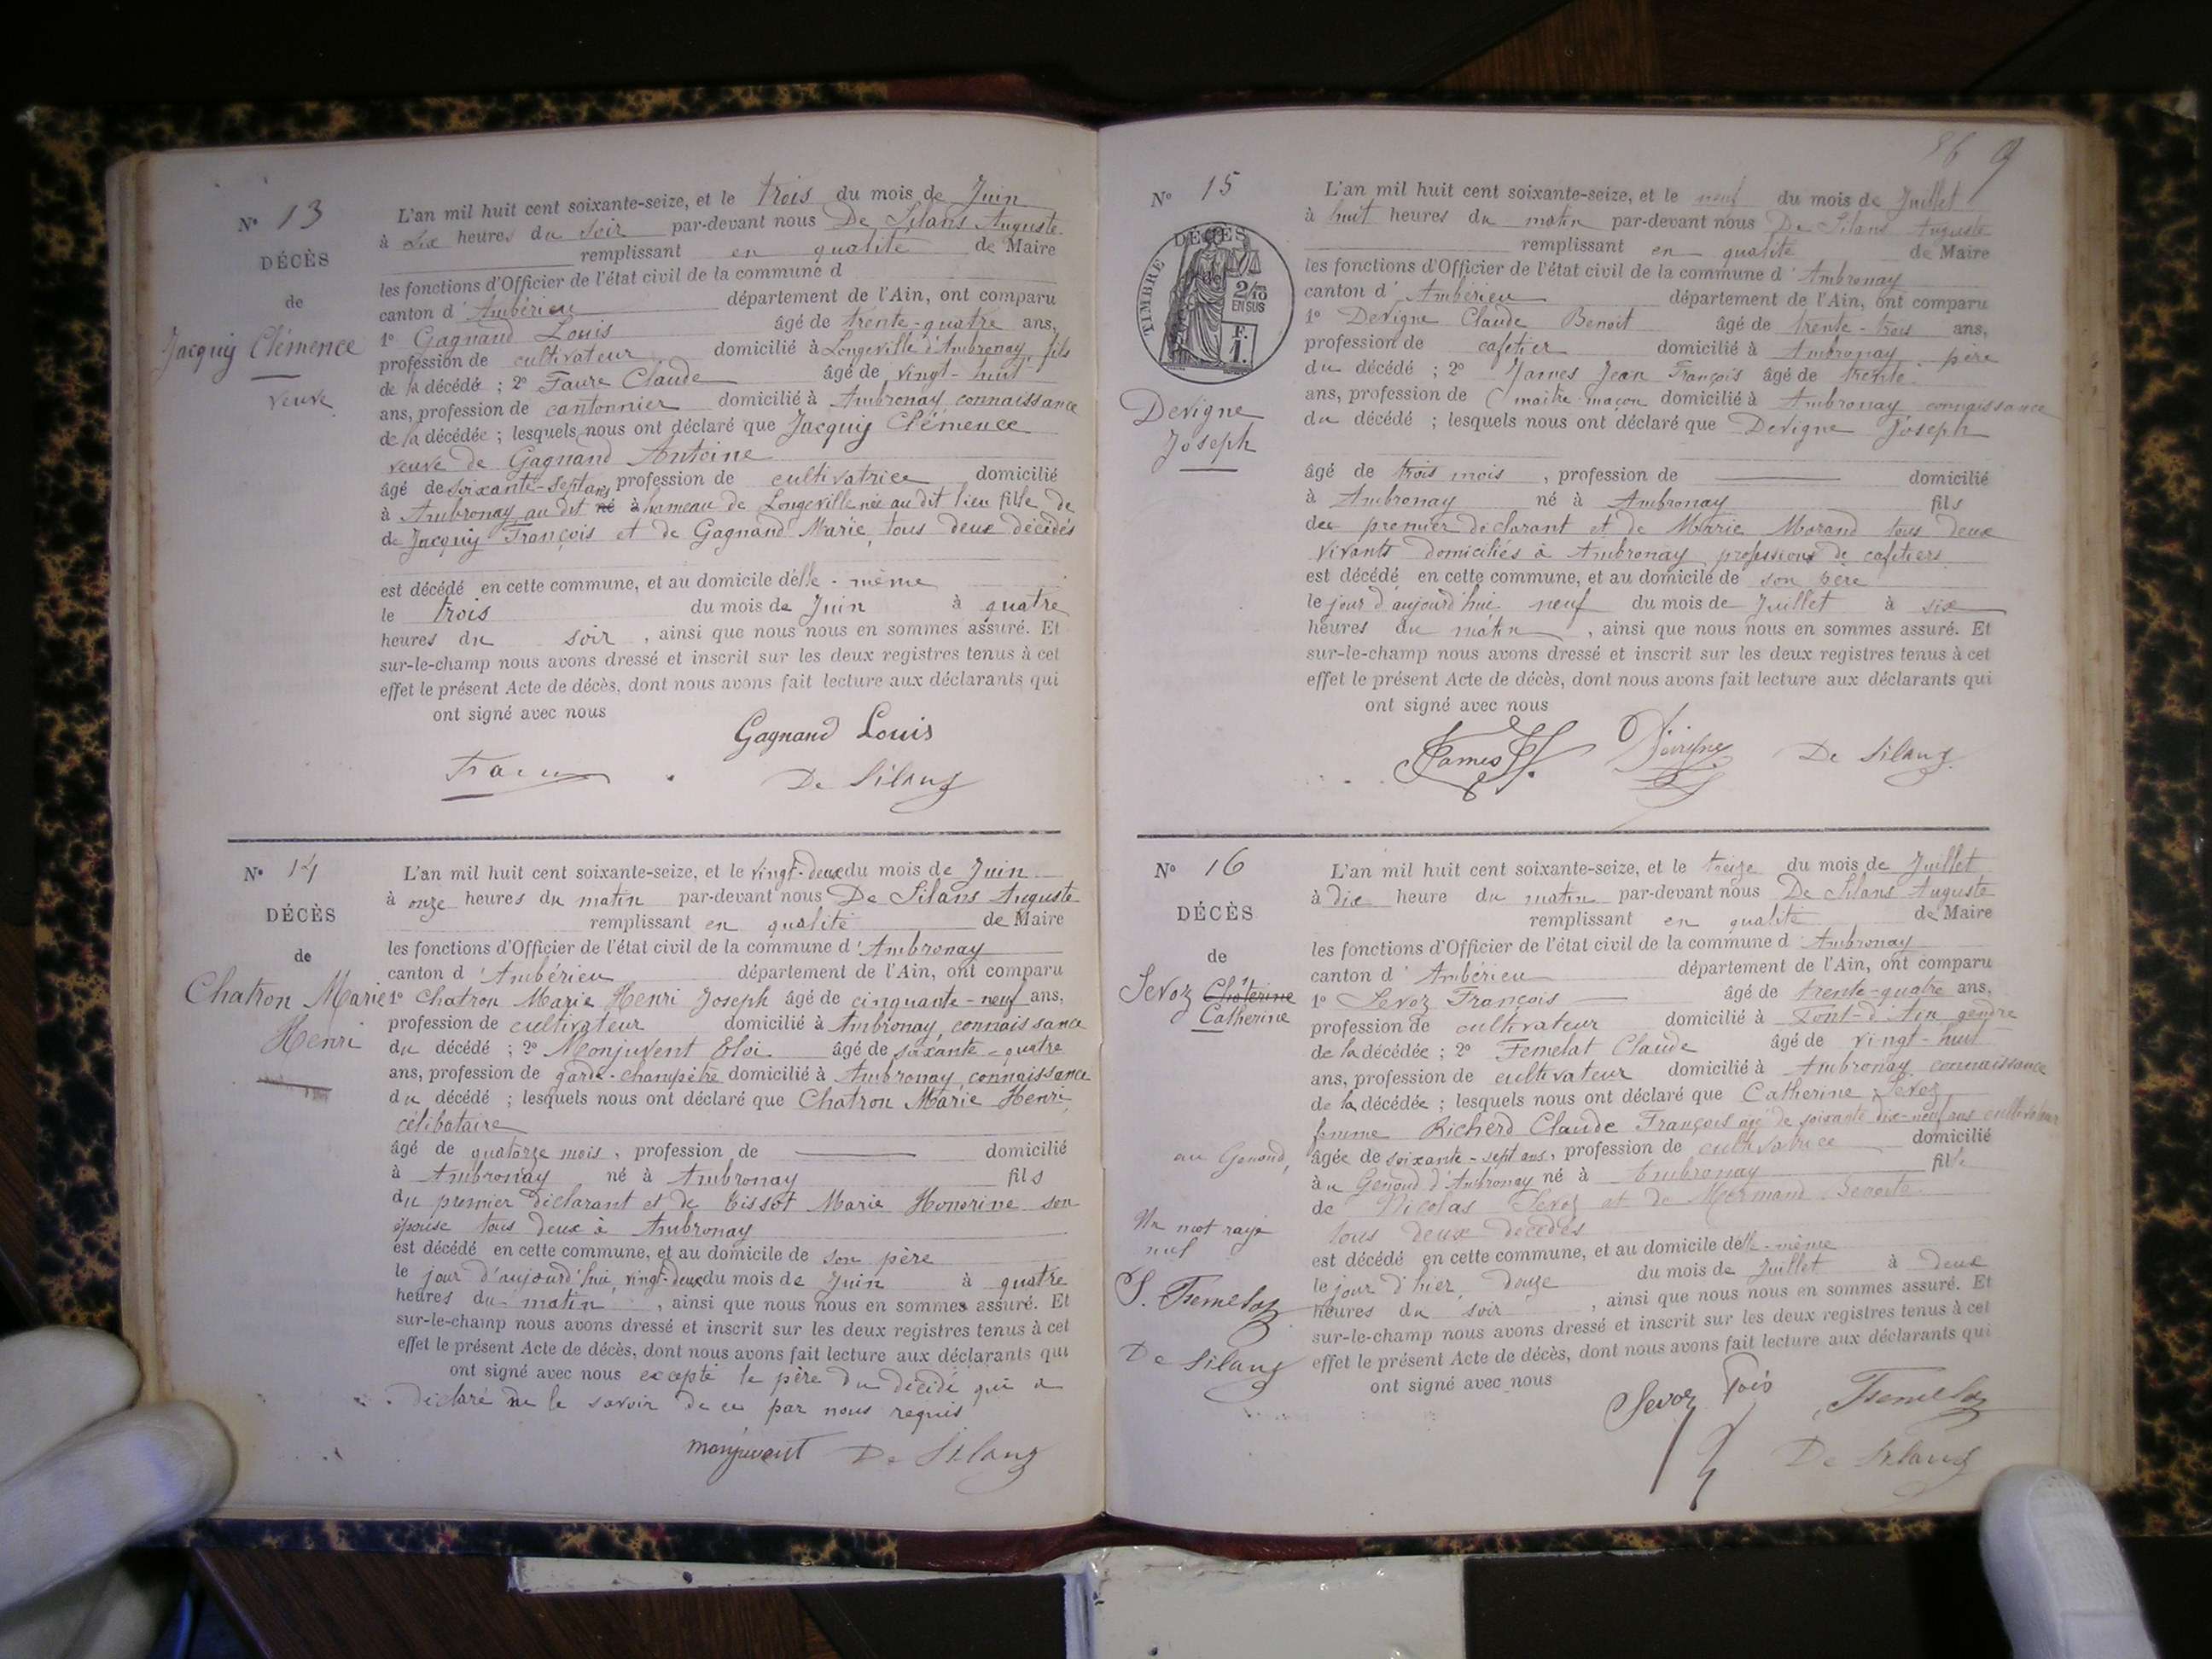 N° 13
DÉCÈS
de
Jacquij Clémence
veuve
L'an mil huit cent soixante-seize, et le trois du mois de Juin
à six heures du soir par-devant nous De Silans Auguste
remplissant en qualité de Maire
les fonctions d'Officier de l'état civil de la commune d
canton d'Ambérieu département de l'Ain, ont comparu
1° Gagnand Louis âgé de trente-quatre ans,
profession de cultivateur domicilié à Longeville d'Ambronay, fils
de la décédé ; 2° Faure Claude âgé de vingt-huit
ans, profession de cantonnier domicilié à Ambronay connaissance
de la décédée ; lesquels nous ont déclaré que Jacquij Clémence
veuve de Gagnand Antoine
âgé de soixante-sept ans profession de cultivatrice domicilié
à Ambronay au dit né à hameau de Longeville née au dit lieu fille de
de Jacquij François et de Gagnand Marie, tous deux décédés
est décédé en cette commune, et au domicile d'elle-même
le trois du mois de Juin à quatre
heures du soir, ainsi que nous nous en sommes assuré. Et
sur-le-champ nous avons dressé et inscrit sur les deux registres tenus à cet
effet le présent Acte de décès, dont nous avons fait lecture aux déclarants qui
ont signé avec nous
Gagnand Louis
De Silans
N° 14
DÉCÈS
de
Chatron Marie
Henri
L'an mil huit cent soixante-seize, et le vingt-deux du mois de Juin
à onze heures du matin par-devant nous De Silans Auguste
remplissant en qualité de Maire
les fonctions d'Officier de l'état civil de la commune d'Ambronay
canton d'Ambérieu département de l'Ain, ont comparu
1° Chatron Marie Henri Joseph âgé de cinquante-neuf ans,
profession de cultivateur domicilié à Ambronay, connaissance
du décédé ; 2° Monjuvent Eloi âgé de soixante-quatre
ans, profession de garde-champêtre domicilié à Ambronay, connaissance
du décédé ; lesquels nous ont déclaré que Chatron Marie Henri
célibataire
âgé de quatorze mois, profession de domicilié
à Ambronay né à Ambronay fils
du premier déclarant et de Tissot Marie Honorine son
épouse tous deux à Ambronay
est décédé en cette commune, et au domicile de son père
le jour d'aujourd'hui, vingt-deux du mois de Juin à quatre
heures du matin, ainsi que nous nous en sommes assuré. Et
sur-le-champ nous avons dressé et inscrit sur les deux registres tenus à cet
effet le présent Acte de décès, dont nous avons fait lecture aux déclarants qui
ont signé avec nous excepté le père du décédé qui a
déclaré ne le savoir de ce par nous requis
monjuvent De Silans
9
N° 15
TIMBRE DÉCÈS
2/10
EN SUS
F.
1.
Devigne
Joseph
L'an mil huit cent soixante-seize, et le neuf du mois de Juillet
à huit heures du matin par-devant nous De Silans Auguste
remplissant en qualité de Maire
les fonctions d'Officier de l'état civil de la commune d'Ambronay
canton d'Ambérieu département de l'Ain, ont comparu
1° Devigne Claude Benoit âgé de trente-trois ans,
profession de cafetier domicilié à Ambronay père
du décédé ; 2° James Jean François âgé de trente
ans, profession de maître-maçon domicilié à Ambronay connaissance
du décédé ; lesquels nous ont déclaré que Devigne Joseph
âgé de trois mois, profession de domicilié
à Ambronay né à Ambronay fils
du premier déclarant et de Marie Morand tous deux
vivants domiciliés à Ambronay professions de cafetiers
est décédé en cette commune, et au domicile de son père
le jour d'aujourd'hui neuf du mois de Juillet à six
heures du matin, ainsi que nous nous en sommes assuré. Et
sur-le-champ nous avons dressé et inscrit sur les deux registres tenus à cet
effet le présent Acte de décès, dont nous avons fait lecture aux déclarants qui
ont signé avec nous
James Devigne De Silans
N° 16
DÉCÈS
de
Sevoz Chaterine
Catherine
au Genoud,
Un mot rayé
nul
De Silans
L'an mil huit cent soixante-seize, et le treize du mois de Juillet
à dix heure du matin par-devant nous De Silans Auguste
remplissant en qualité de Maire
les fonctions d'Officier de l'état civil de la commune d'Ambronay
canton d'Ambérieu département de l'Ain, ont comparu
1° Sevoz François âgé de trente-quatre ans,
profession de cultivateur domicilié à Pont-d'Ain gendre
de la décédée ; 2° Femelat Claude âgé de vingt-huit
ans, profession de cultivateur domicilié à Ambronay connaissance
de la décédée ; lesquels nous ont déclaré que Catherine Sevoz
femme Richerd Claude François âgé de soixante dix-neuf ans cultivateur
âgée de soixante-sept ans, profession de cultivatrice domicilié
à u Genoud d'Ambronay né à Ambronay fille
de Nicolas Sevoz et de Mermand Benoite
tous deux décédés
est décédé en cette commune, et au domicile d'elle-même
le jour d'hier, douze du mois de Juillet à deux
heures du soir, ainsi que nous nous en sommes assuré. Et
sur-le-champ nous avons dressé et inscrit sur les deux registres tenus à cet
effet le présent Acte de décès, dont nous avons fait lecture aux déclarants qui
ont signé avec nous
Sevoz Fois Femelat
De Silans